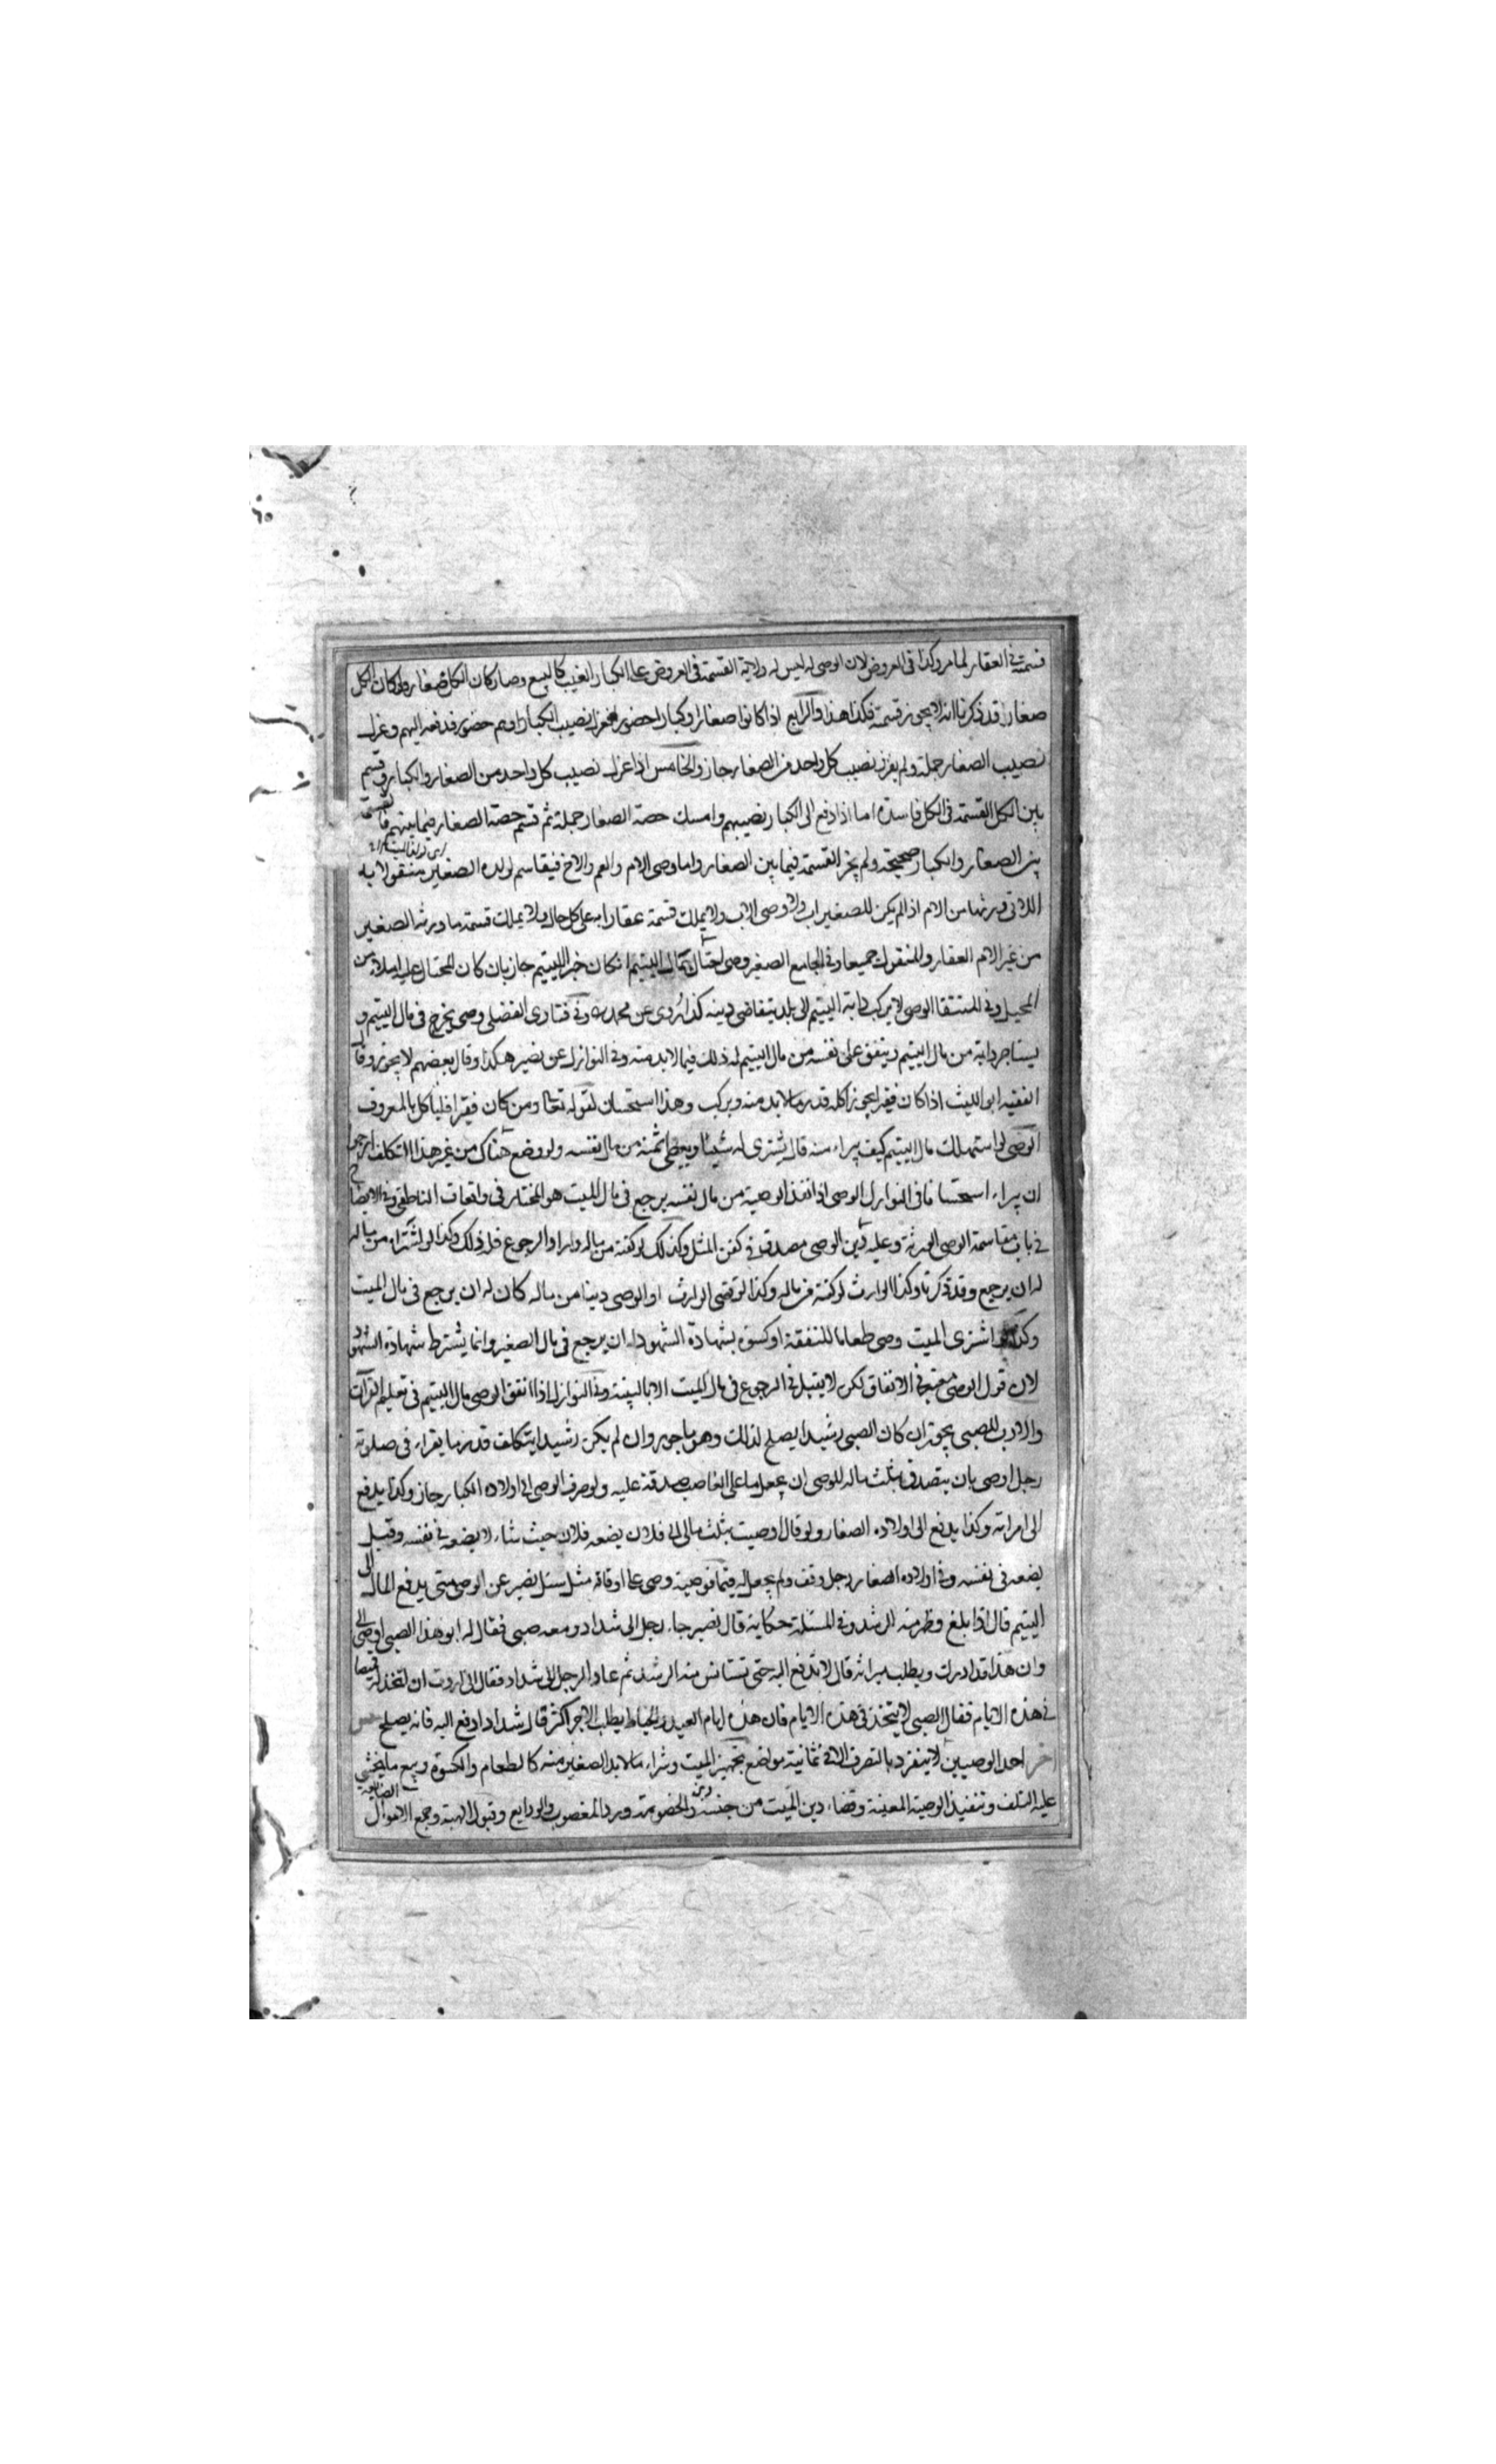 قسمته في العقار لما مر وكذا في العروض لان الوصي له ليس له ولاية القسمة في العروض على الكبار الغيب كالبيع وصار كان الكل صغار ولو كان الكل
صغارا قد ذكرنا انه لا يجوز قسمته فكذا هذا والرابع اذا كانوا صغارا وكبارا حضورا فعزل نصيب الكبار وهم حضور فدفعه اليهم وعزل
نصيب الصغار جملة ولم يفرز نصيب كل واحد من الصغار جاز والخامس اذا عزل نصيب كل واحد من الصغار والكبار وقسم
بين الكل القسمة في الكل فاسدة اما اذا دفع الى الكبار نصيبهم وامسك حصة الصغار جملة ثم قسم حصة الصغار فيما بينهم فالقسمة
بين الصغار والكبار صحيحة ولم يجز القسمة فيما بين الصغار واما وصي الام والعم والاخ فيقاسم لولده الصغير منقولاته
اللاتي ورثها من الام اذا لم يكن للصغير اب ولا وصي الاب ولا يملك قسمة عقاراته على كل حال ولا يملك قسمة ما ورثه الصغير
من غير الام العقار والمنقول جميعا وفي الجامع الصغير وصي احتال بمال اليتيم ان كان خيرا لليتيم جاز بان كان المحتال عليه املاء من
المحيل وفي المنتقا الوصي لا يركب دابة اليتيم الى بلد يتقاضى دينه كذا روى عن محمد ره وفي فتاوى الفضلي وصي يخرج في مال اليتيم و
يستاجر دابة من مال اليتيم وينفق على نفسه من مال اليتيم له ذلك فيما لا بد منه وفي النوازل عن نصير هكذا وقال بعضهم لا يجوز وقال
الفقيه ابو الليث اذا كان فقيرا يجوز اكله قدر ما لا بد منه ويركب وهذا استحسان لقوله تعا ومن كان فقيرا فلياكل بالمعروف
الوصي لو استهلك مال اليتيم كيف يبراء منه قال يشترى له شيئا ويعطى ثمنه من مال نفسه ولو وضع هناك من غير هذا التكلف ارجوا
ان يبراء استحسانا في النوازل الوصي اذا انفذ الوصية من مال نفسه يرجع في مال الميت هو المختار في واقعات الناطفي وفي الايضاح
في باب مقاسمة الوصي الورثة وعليه دين الوصي مصدق في كفن المثل وكذلك لو كفنه من ماله واراد الرجوع فله ذلك وكذا لو اشتراه من ماله
له ان يرجع وقد ذكرنا وكذا الوارث لو كفنه من ماله وكذا لو قضى الوارث او الوصي دينا من ماله كان له ان يرجع في مال الميت
وكذا لو اشترى الميت وصي طعاما للنفقة او كسوة بشهادة الشهود له ان يرجع في مال الصغير وانما يشترط شهادة الشهود
لان قول الوصي معتبر في الانفاق لكن لا يقبل في الرجوع في مال الميت الا بالبينة وفي النوازل اذا انفق الوصي مال اليتيم في تعليم القرآن
والادب للصبي يجوز ان كان الصبي رشيدا يصلح لذلك وهو ماجور وان لم يكن رشيدا يتكلف قدر ما يقراء في صلوته
رجل اوصى بان يتصدق بثلث ماله للوصي ان يجعل ما على الغاصب صدقة عليه ولو صرف الوصي الى اولاده الكبار جاز وكذا يدفع
الى امراته وكذا يدفع الى اولاده الصغار ولو قال اوصيت بثلث مالي الى فلان يضعه فلان حيث شاء لا يضعه في نفسه وقيل
يضعه في نفسه وفي اولاده الصغار رجل وقف ولم يجعل له قيما فوصيه وصي على اوقافه مثل سئل نصير عن الوصي متى يدفع المال الى
اليتيم قال اذا بلغ وظهر منه الرشد وفي المسئلة حكاية قال نصير جاء رجل الى شداد ومعه صبي فقال له ابو هذا الصبي اوصى الي
وان هذا قد ادرك ويطلب ميراثه قال لا تدفع اليه حتى تستانس منه الرشد ثم عاد الرجل الى شداد فقال اني اردت ان اتخذ له قميصا
في هذه الايام فقال الصبي لا يتخذ في هذه الايام فان هذه ايام العيد والخياط يطلب الاجر اكثر قال شداد ادفع اليه فانه يصلح
احد الوصيين لا ينفرد بالتصرف الا في ثمانية مواضع تجهيز الميت وشراء ما لا بد للصغير منه كالطعام والكسوة وبيع ما يخشى
عليه التلف وتنفيذ الوصية المعينة وقضاء دين الميت من جنسه والخصومة ورد المغصوب والودايع وقبول الهبة وجمع الاموال الضائعة